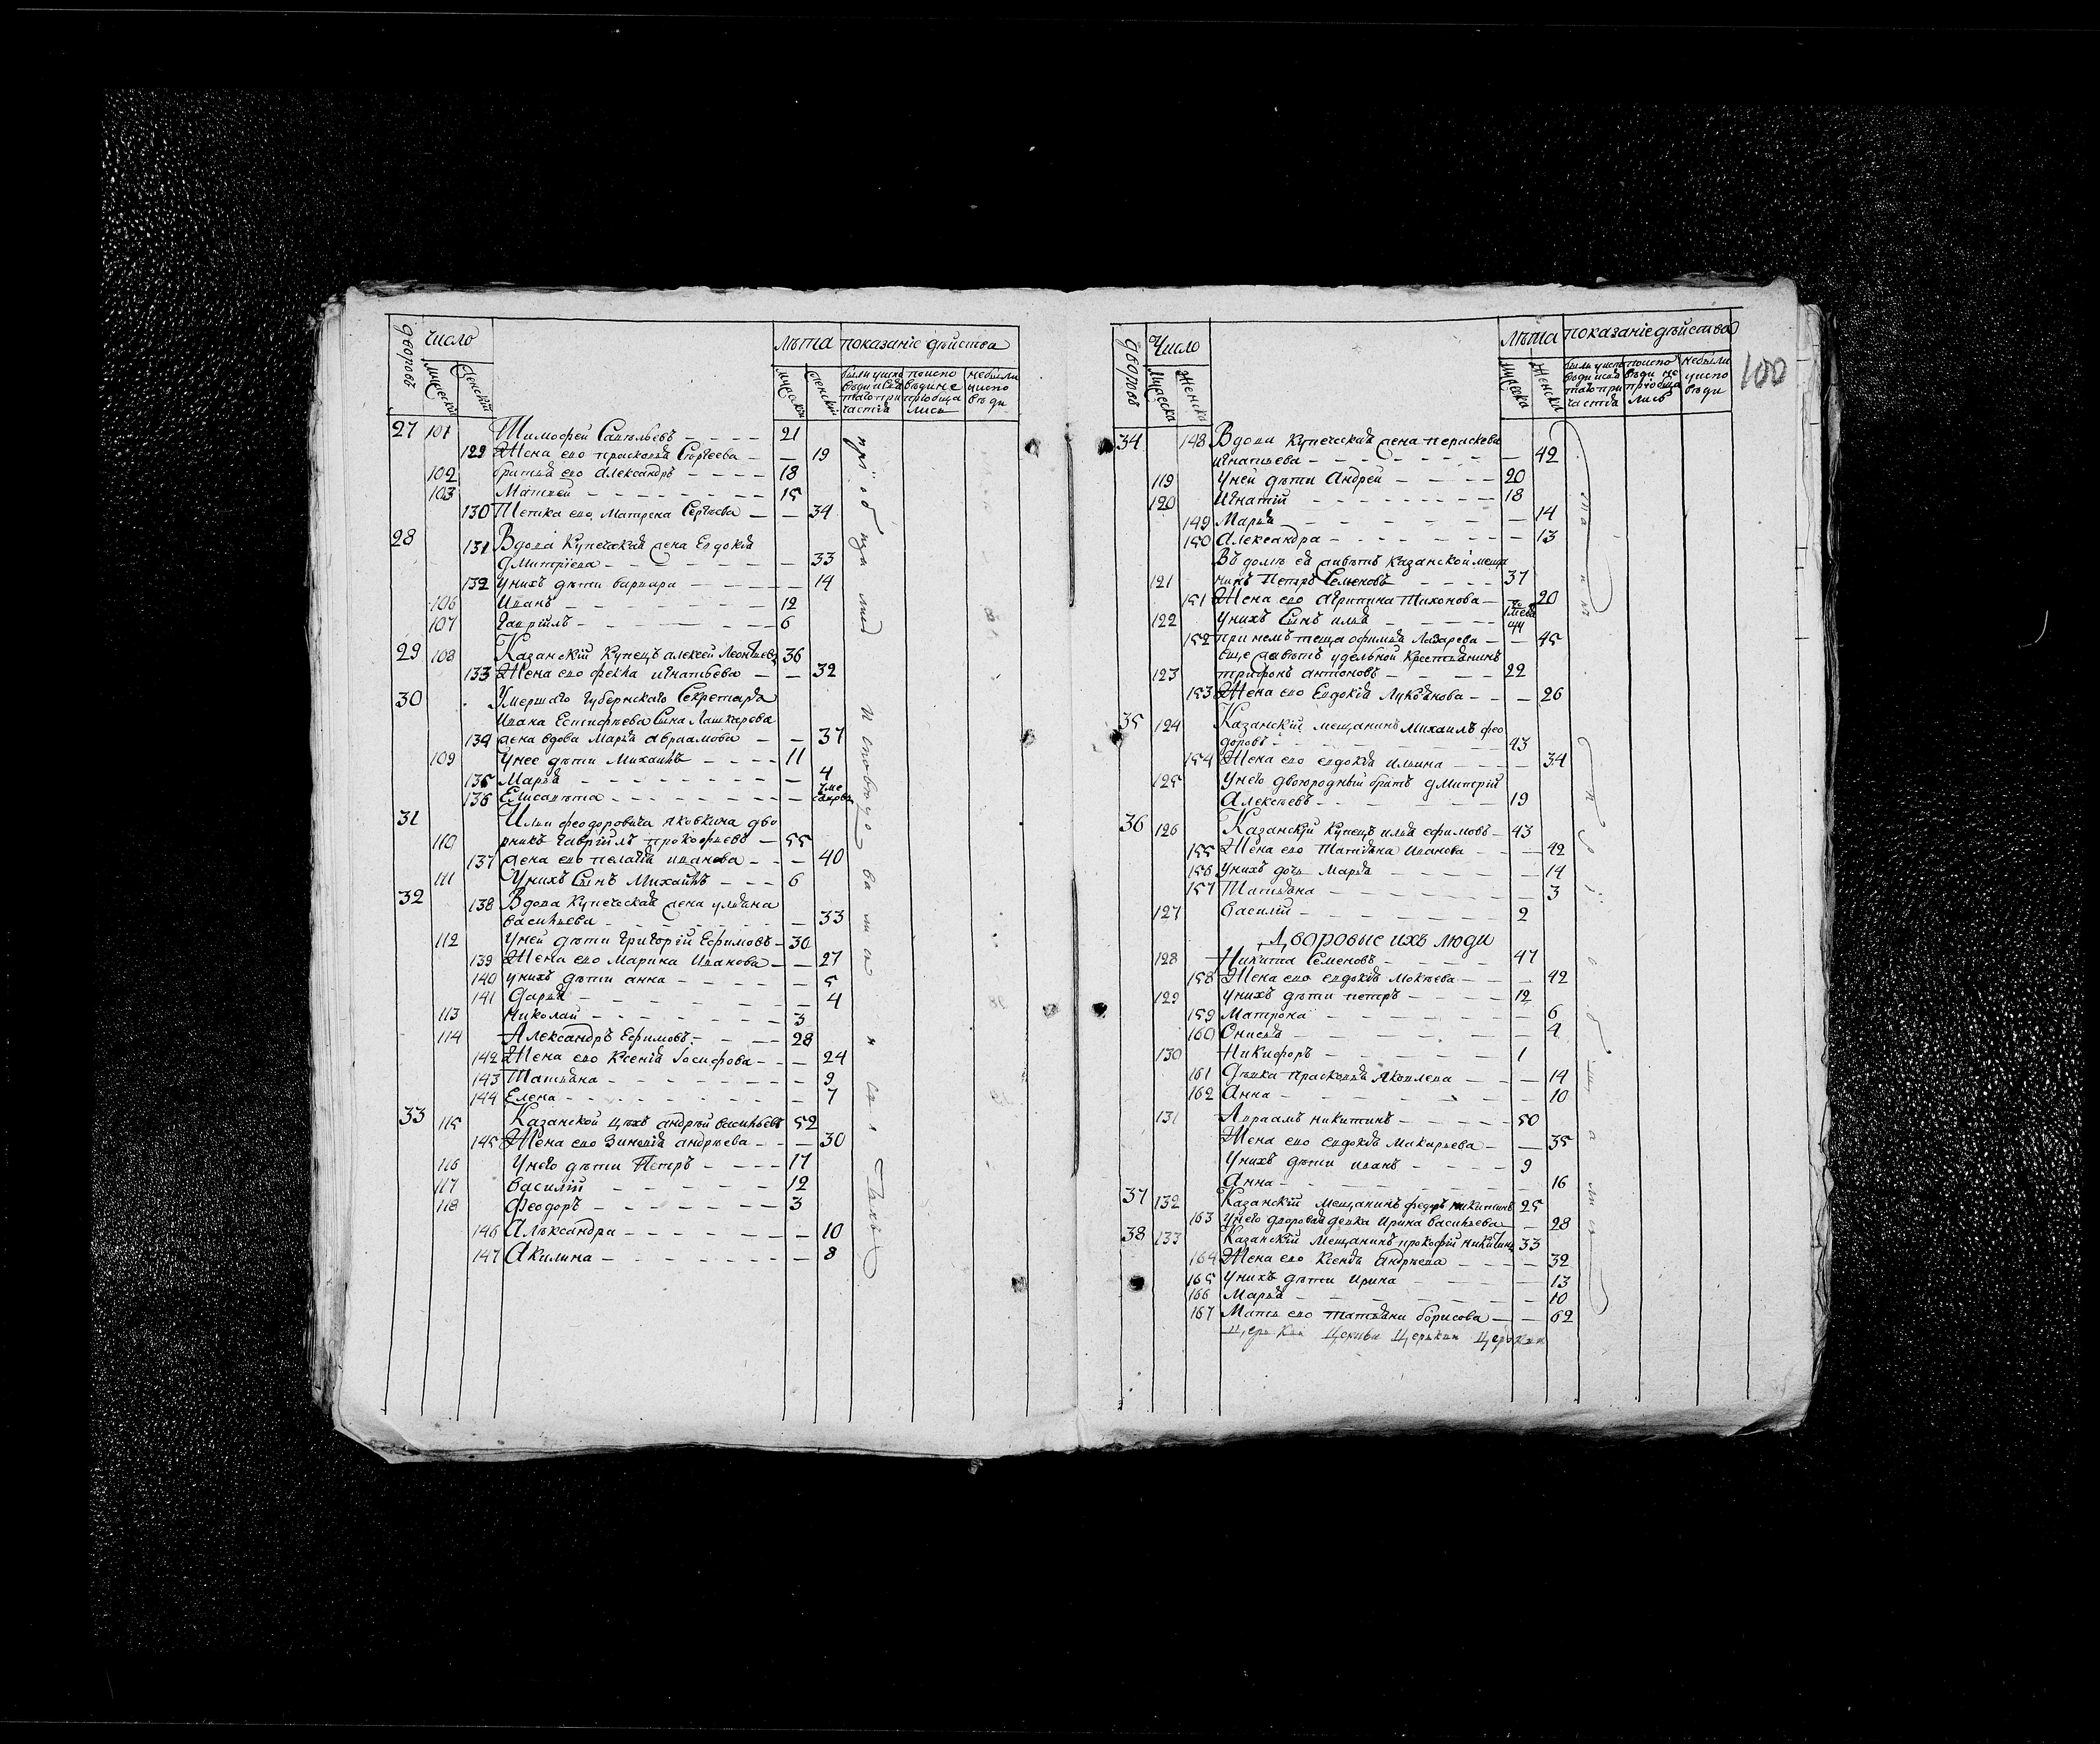 дворовъ число лѣта показаніе дѣйства
мужескій женскій мужескій женскій
27 101 Тимофей Савельевъ 21
129 Жена его прасковья Сергеева 19
102 братья его Александръ 18
103 Матвей 15
130 Тетка его Матрена Сергѣева 34
28 131 Вдова Купеческая жена Евдокія
дмитріева 33
132 унихъ дѣти варвара 14
106 Иванъ 12
107 гавріилъ 6
29 108 Казанскій Купецъ алексей Леонтьевъ 36
133 Жена его фекла игнатьева 32
30 Умершаго губернскаго Секретаря
Ивана Сына Лашкарева
134 жена вдова Марья авраамова 37
109 Унее дѣти Михаилъ 11
135 Марья 4
136 Елисавета
31 Ильи феодоровича яковкина дво
110 рникъ гавріилъ прокофьевъ 55
137 жена его пелагія иванова 40
111 Унихъ Сынъ Михаилъ 6
32 138 Вдова Купеческая жена ульяна
васильева 33
112 Уней дѣти григорій Ефимовъ 30
139 Жена его Марина Иванова 27
140 унихъ дѣти анна 5
141 дарья 4
113 Николай 3
114 Александръ Ефимовъ 28
142 Жена его Ксенія Іосифова 24
143 Татьяна 9
144 Елена 7
33 115 Казанской цѣх андрей васильевъ 52
145 Жена его Зиновія андрѣева 30
116 Унего дѣти Петръ 17
117 василій 12
118 феодоръ 3
146 Александра 10
147 Акилина 8
дворовъ Число лѣта показаніе дѣйства 100
мужеска женска мужеска женска
34 148 Вдова Купеческая жена перасковья
игнатьева 42
119 Уней дѣти Андрей 20
120 Игнатій 18
149 Марья 14
150 Александра 13
Въ домѣ ея живетъ Казанской меща
121 нинъ Петръ Семеновъ 37
151 Жена его агрипина Тихонова 20
122 Унихъ Сынъ илья
152 при немъ теща офимья Лазарева 45
еще живетъ удельной Крестьянинъ
123 трифонъ антоновъ 22
153 Жена его Евдокія Лукьянова 26
35 124 Казанскій мещанинъ Михаилъ фео
доровъ 43
154 Жена его евдокія ильина 34
125 Унего двоюродный братъ дмитрій
Алексѣевъ 19
36 126 Казанскій Купецъ илья ефимовъ 43
155 Жена его Татьяна Иванова 42
156 унихъ дочь Марья 14
157 Татьяна 3
127 Василій 2
Дворовые ихъ люди
128 Никита Семеновъ 47
158 Жена его евдокія Мокѣева 42
129 унихъ дѣти петръ 12
159 Матрона 6
160 Онисья 4
130 Никифоръ 1
161 Дѣвка прасковья Яковлева 14
162 Анна 10
131 Авраамъ никитинъ 50
Жена его евдокія Макарьева 35
Унихъ дѣти иванъ 9
Анна 16
37 132 Казанскій мещанинъ федоръ никитинъ 25
163 Унего дворовая девка Ирина васильева 28
38 133 Казанскій мещанинъ прокофій никитинъ 33
164 Жена его Ксенья Андрѣева 32
165 Унихъ дѣти Ирина 13
166 Марья 10
167 Мать его татьяна борисова 62